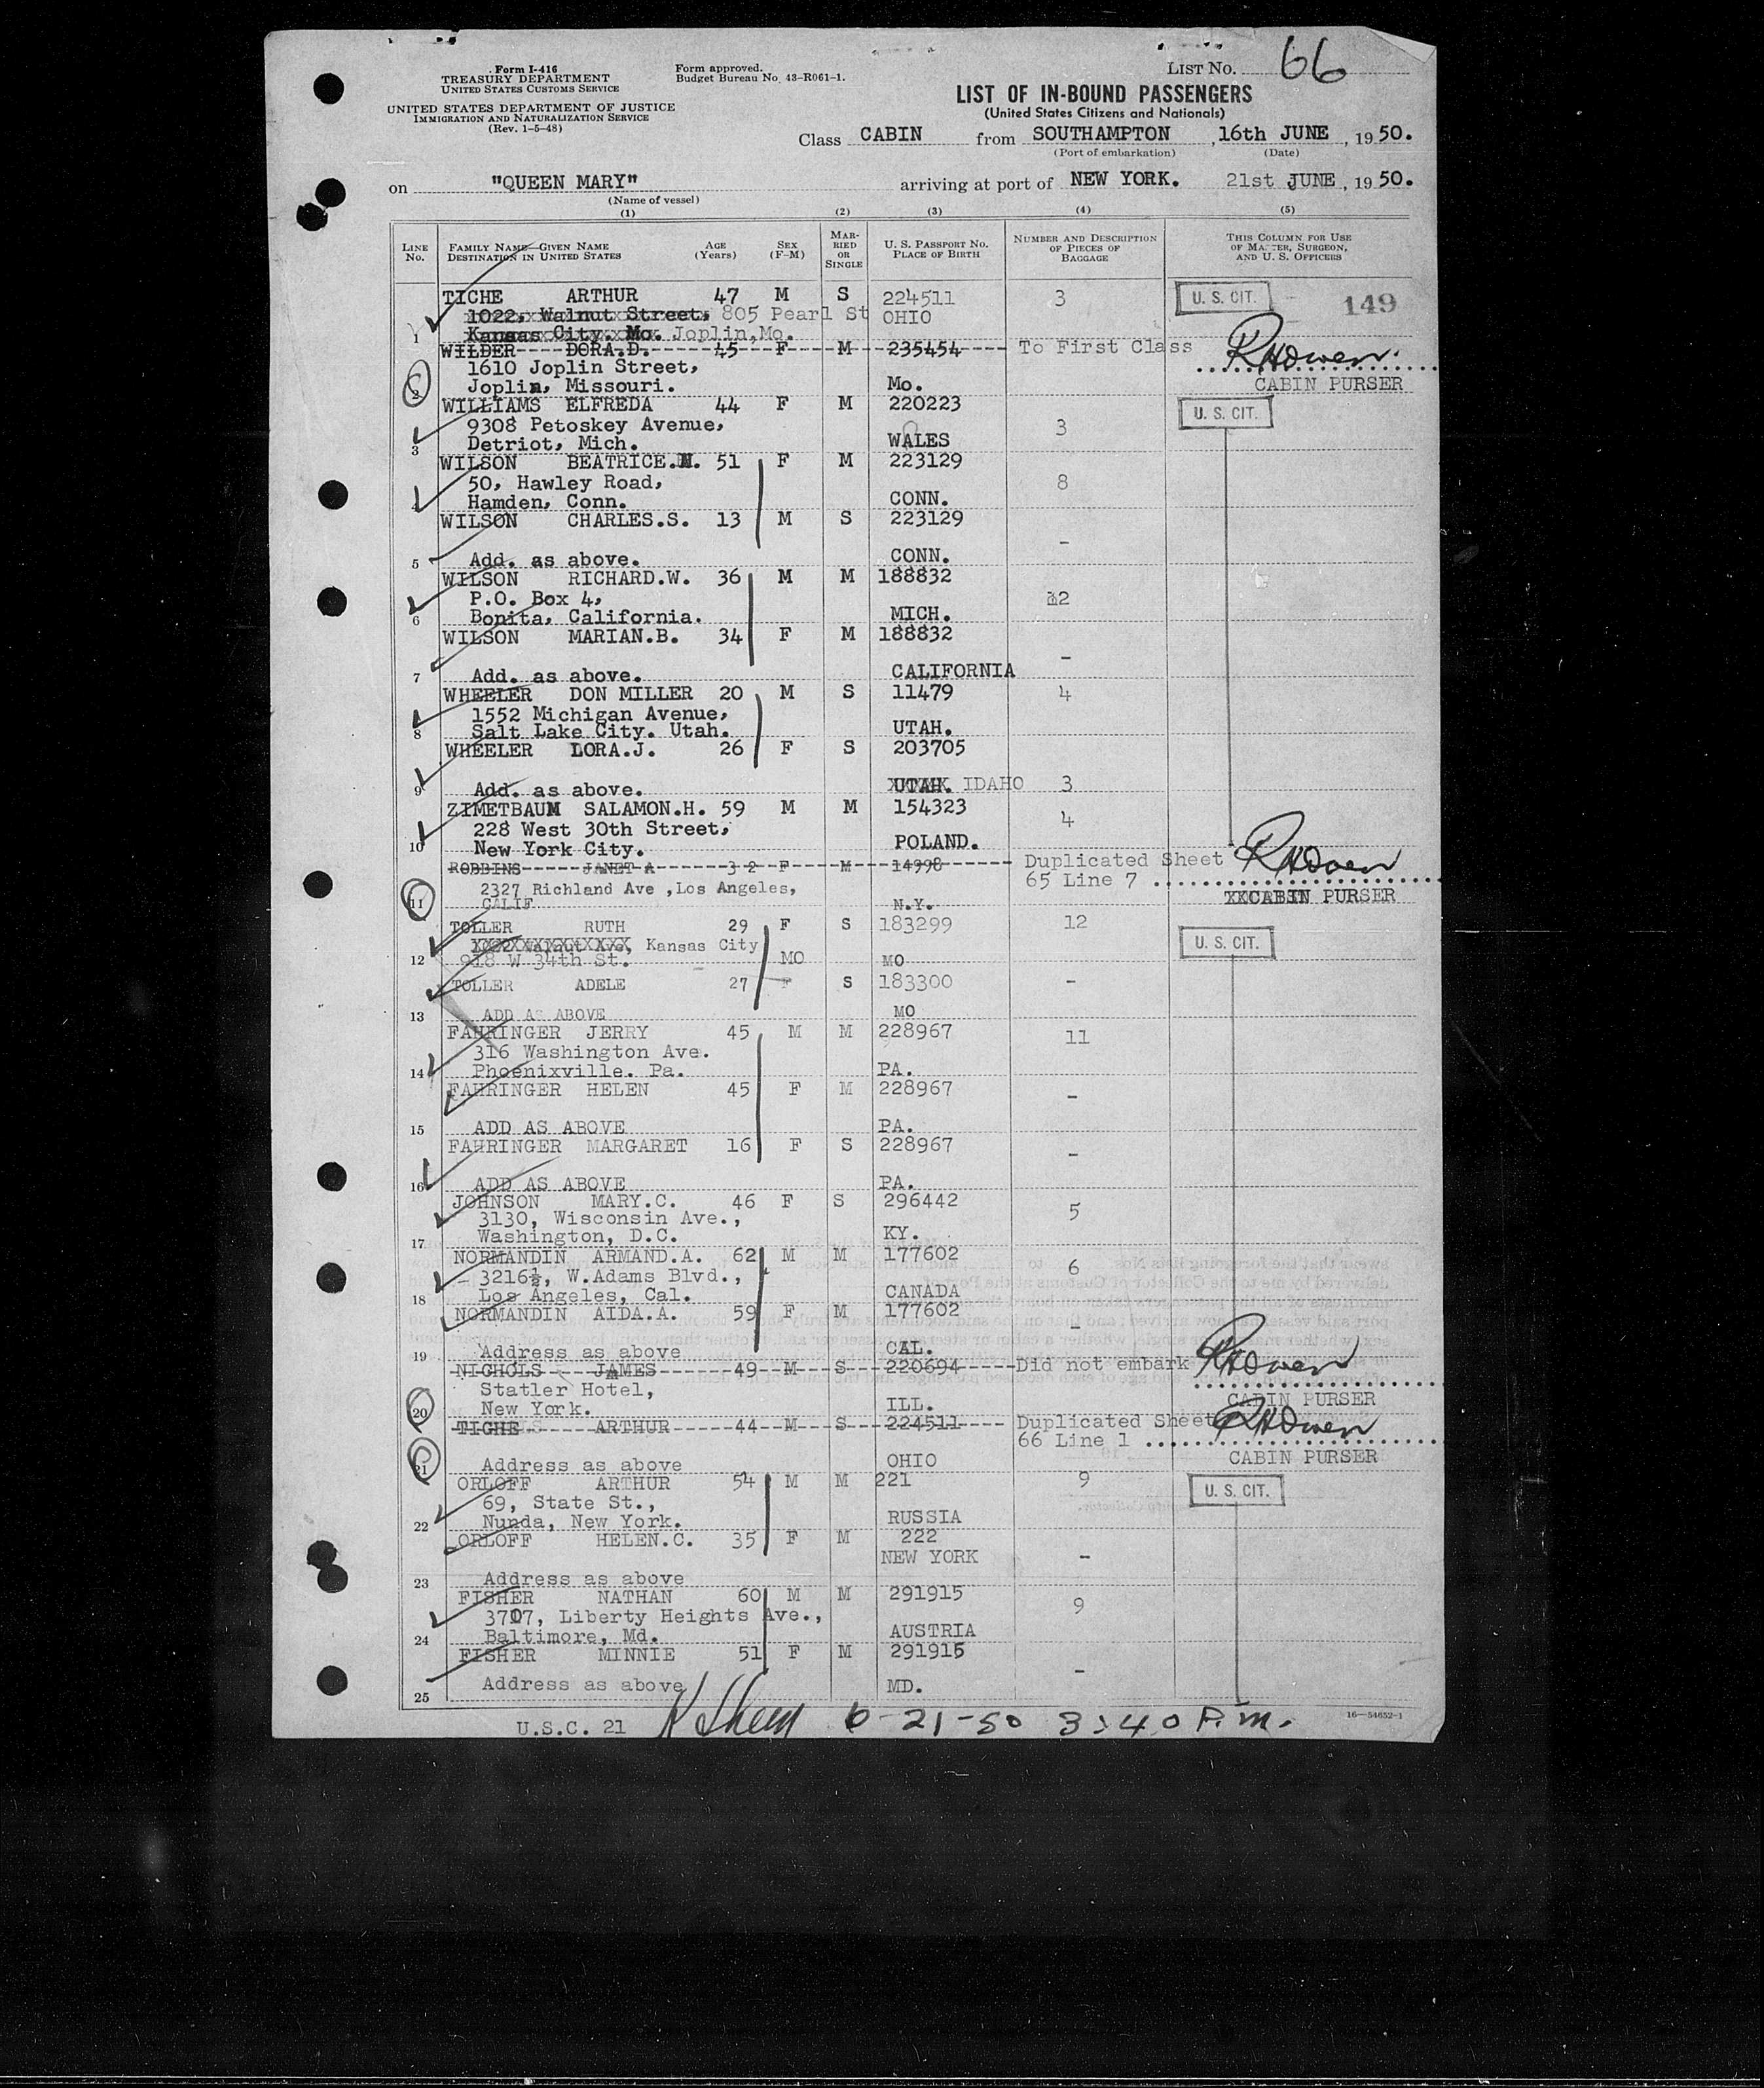 Form I-416
TREASURY DEPARTMENT
UNITED STATES CUSTOMS SERVICE
UNITED STATES DEPARTMENT OF JUSTICE
IMMIGRATION AND NATURALIZATION SERVICE
(Rev. 1-5-48)
Form approved.
Budget Bureau No. 43-R061-1.
LIST NO. 66
LIST OF IN-BOUND PASSENGERS
(United States Citizens and Nationals)
Class CABIN from SOUTHAMPTON, 16th JUNE, 1950.
(Port of embarkation) (Date)
on "QUEEN MARY" arriving at port of NEW YORK. 21st JUNE, 1950.
(Name of vessel)
(1) (2) (3) (4) (5)
LINE No. FAMILY NAME—GIVEN NAME DESTINATION IN UNITED STATES AGE (Years) SEX (F-M) MARRIED OR SINGLE U. S. PASSPORT NO. PLACE OF BIRTH NUMBER AND DESCRIPTION OF PIECES OF BAGGAGE THIS COLUMN FOR USE OF MASTER, SURGEON, AND U. S. OFFICERS
TICHE ARTHUR 47 M S 224511 3 U. S. CIT. 149
1022, Walnut Street, 805 Pearl St OHIO
1 Kansas City. Mo. Joplin, Mo.
WILDER DORA.D. 45 F M 235454 To First Class RHOwen.
1610 Joplin Street,
2 Joplin, Missouri. Mo. CABIN PURSER
WILLIAMS ELFREDA 44 F M 220223 U. S. CIT.
9308 Petoskey Avenue, 3
3 Detriot, Mich. WALES
WILSON BEATRICE.N. 51 F M 223129
50, Hawley Road, 8
4 Hamden, Conn. CONN.
WILSON CHARLES.S. 13 M S 223129
-
5 Add. as above. CONN.
WILSON RICHARD.W. 36 M M 188832
P.O. Box 4, 12
6 Bonita, California. MICH.
WILSON MARIAN.B. 34 F M 188832
-
7 Add. as above. CALIFORNIA
WHEELER DON MILLER 20 M S 11479 4
1552 Michigan Avenue,
8 Salt Lake City. Utah. UTAH.
WHEELER LORA.J. 26 F S 203705
9 Add. as above. UTAH. IDAHO 3
ZIMETBAUM SALAMON.H. 59 M M 154323
228 West 30th Street, 4
10 New York City. POLAND.
ROBBINS JANET A 32 F M 14998 Duplicated Sheet RHOwen
2327 Richland Ave ,Los Angeles, 65 Line 7
11 CALIF N.Y. XXCABIN PURSER
TOLLER RUTH 29 F S 183299 12
XXXXXXXXXXXXX Kansas City U. S. CIT.
12 918 W 34th St. MO MO
TOLLER ADELE 27 F S 183300 -
13 ADD AS ABOVE MO
FAHRINGER JERRY 45 M M 228967
316 Washington Ave. 11
14 Phoenixville. Pa. PA.
FAHRINGER HELEN 45 F M 228967
-
15 ADD AS ABOVE PA.
FAHRINGER MARGARET 16 F S 228967
-
16 ADD AS ABOVE PA.
JOHNSON MARY.C. 46 F S 296442
3130, Wisconsin Ave., 5
17 Washington, D.C. KY.
NORMANDIN ARMAND.A. 62 M M 177602
3216½, W.Adams Blvd., 6
18 Los Angeles, Cal. CANADA
NORMANDIN AIDA.A. 59 F M 177602
-
19 Address as above CAL.
NICHOLS JAMES 49 M S 220694 Did not embark RHOwen
Statler Hotel,
20 New York. ILL. CABIN PURSER
TIGHE ARTHUR 44 M S 224511 Duplicated Sheet RHOwen
66 Line 1
21 Address as above OHIO CABIN PURSER
ORLOFF ARTHUR 54 M M 221 9 U. S. CIT.
69, State St.,
22 Nunda, New York. RUSSIA
ORLOFF HELEN.C. 35 F M 222
NEW YORK -
23 Address as above
FISHER NATHAN 60 M M 291915
3707, Liberty Heights Ave., 9
24 Baltimore, Md. AUSTRIA
FISHER MINNIE 51 F M 291915
-
25 Address as above MD.
U.S.C. 21 6-21-50 3:40 P.m. 16—54652-1